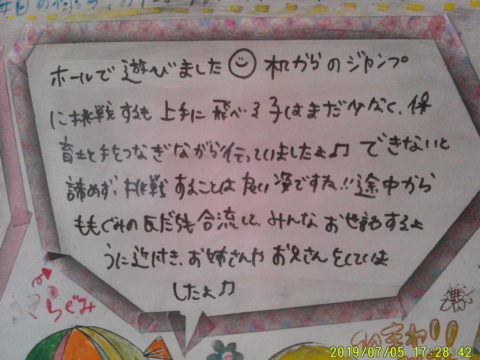 ホールで遊びました 机からのジャンプ
に挑戦するも上手に飛べる子はまだ少なく、保
育士と手をつなぎながら行っていましたよ♫ できないと
諦めず、挑戦することは良い姿ですね!!途中から
ももぐみの友だちも合流して、みんなお世話するよ
うに近付き、お姉さんやお兄さんをしていま
したよ♫
さくらぐみ
2019/07/05 17:28:42